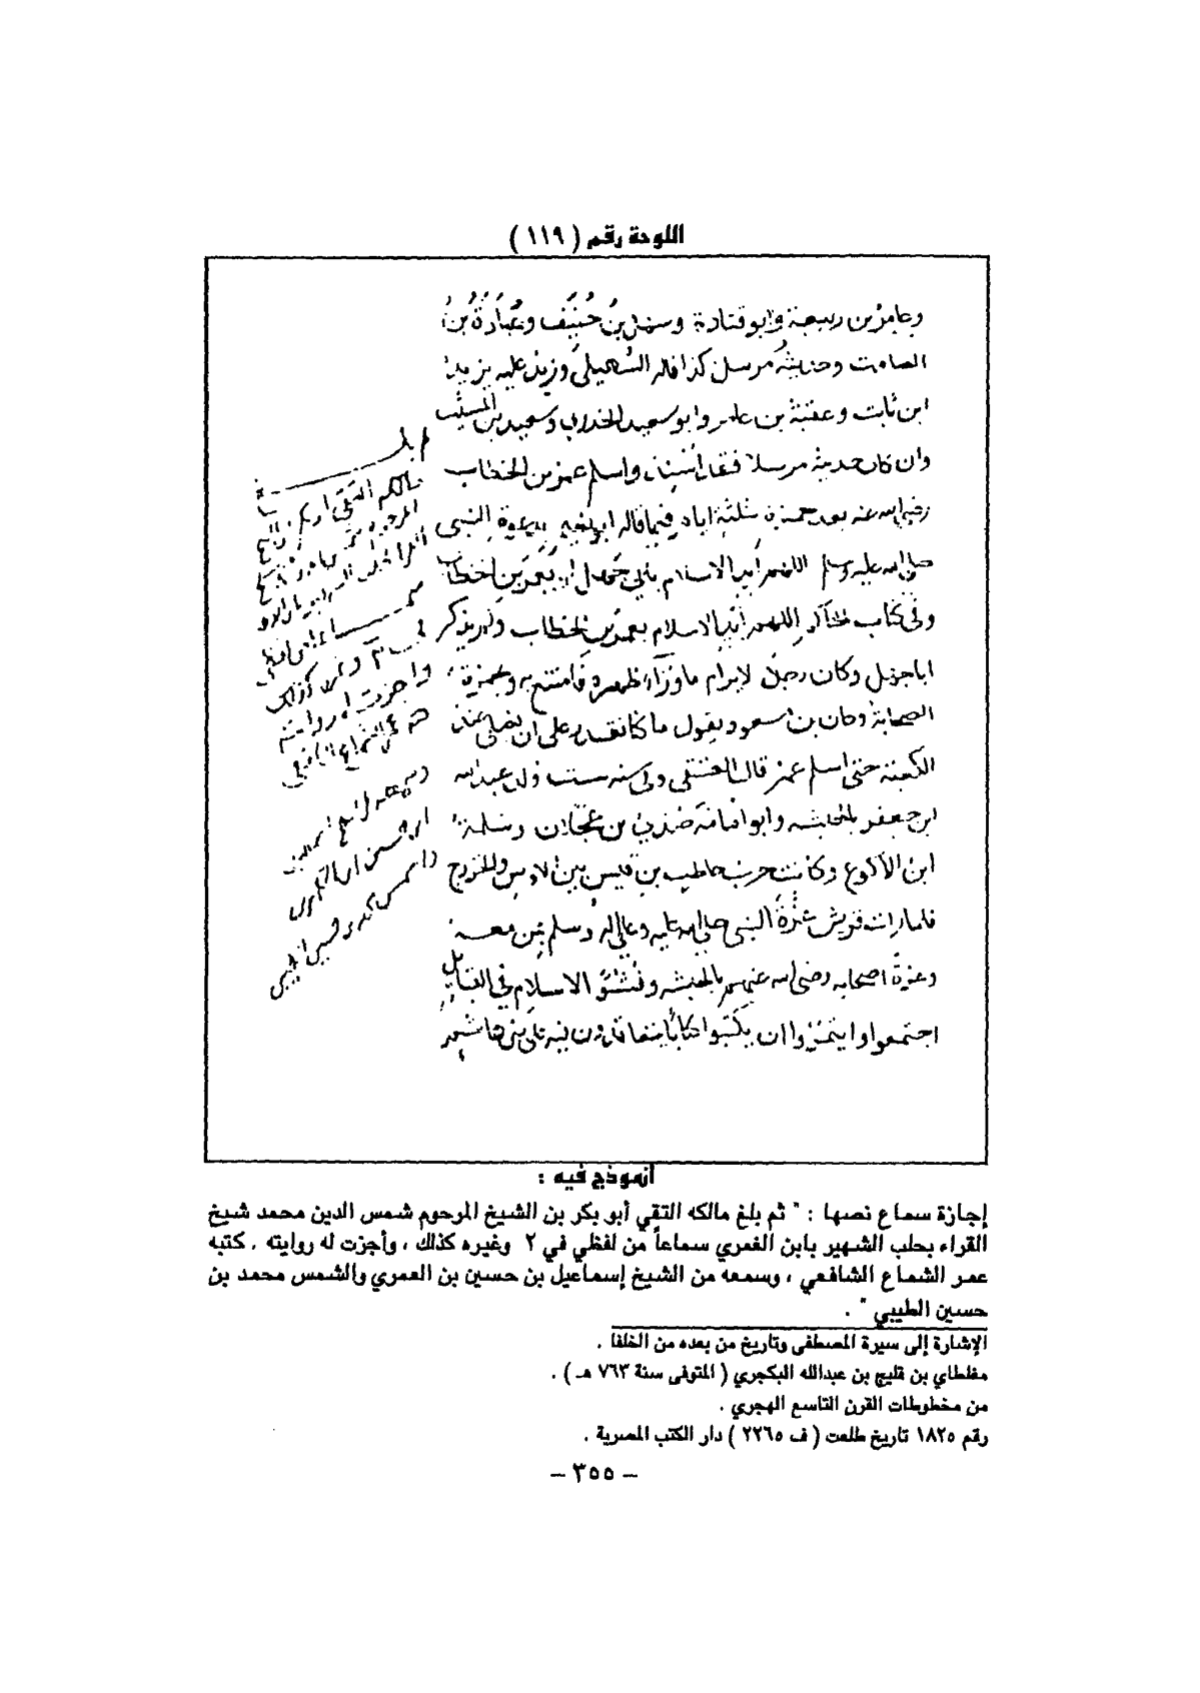 اللوحة رقم ( ١١٩ )
وعامر بن ربيعة وابو قتادة وسهل بن حنيف وعبادة بن
الصامت وحديثه مرسل كذا قاله السهيلي وزيد عليه يزيد
ابن ثابت وعقبة بن عامر وابو سعيد الخدري وسعيد بن المسيب
وان كان حديثه مرسلا فقال واسلم عمر بن الخطاب
رضي الله عنه بعد حمزة بثلثة ايام فيما قاله ابو نعيم بدعوة النبي
صلى الله عليه وسلم اللهم أيد الاسلام بابي جهل او بعمر بن الخطاب
وفي كتاب الحاكم اللهم أيد الاسلام بعمر بن الخطاب ولم يذكر
ابا جهل وكان رجلا لا يرام ما وراء ظهره فامتنع به وبحمزة
الصحابة وكان بن مسعود يقول ما كنا نقدر على ان نصلي عند
الكعبة حتى اسلم عمر قال العتقي وفي سنه ست ولد عبد الله
ابن جعفر بالحبشه وابو امامة صدي بن عجلان وسلمة
ابن الأكوع وكانت حرب حاطب بن قيس بين الاوس والخزرج
فلما رات قريش عزة النبي صلى الله عليه وعلى اله وسلم بمن معه
وعزة اصحابه رضي الله عنهم بالحبشه وفشو الاسلام في القبايل
اجتمعوا وايتمروا ان يكتبوا كتابا يتعاقدون فيه على بني هاشم
ثم بلغ
مالكه التقي ابو بكر بن الشيخ
المرحوم شمس الدين محمد شيخ
القراء بحلب الشهير بابن
سماعا من لفظي
في ٢ وغيره كذلك
واجزت له روايته
كتبه عمر الشماع الشافعي
وسمعه من الشيخ اسماعيل
بن حسين بن العمري
والشمس محمد بن حسين الطيبي
أنموذج فيه :
إجازة سماع نصها : " ثم بلغ مالكه التقي أبو بكر بن الشيخ المرحوم شمس الدين محمد شيخ
القراء بحلب الشهير بابن الغمري سماعاً من لفظي في ٢ وغيره كذلك ، وأجزت له روايته . كتبه
عمر الشماع الشافعي ، وسمعه من الشيخ إسماعيل بن حسين بن العمري والشمس محمد بن
حسين الطيبي " .
الإشارة إلى سيرة المصطفى وتاريخ من بعده من الخلفا .
مغلطاي بن قليج بن عبدالله البكجري ( المتوفى سنة ٧٦٣ هـ ) .
من مخطوطات القرن التاسع الهجري .
رقم ١٨٢٥ تاريخ طلعت ( ف ٢٢٦٥ ) دار الكتب المصرية .
– ٣٥٥ –